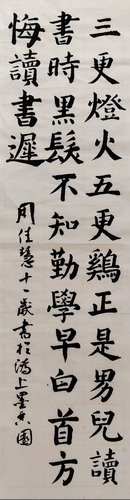 三更燈火五更鷄正是男兒讀
書時黑髮不知勤學早白首方
悔讀書遲
周佳慧十一歲書於澪上墨香園